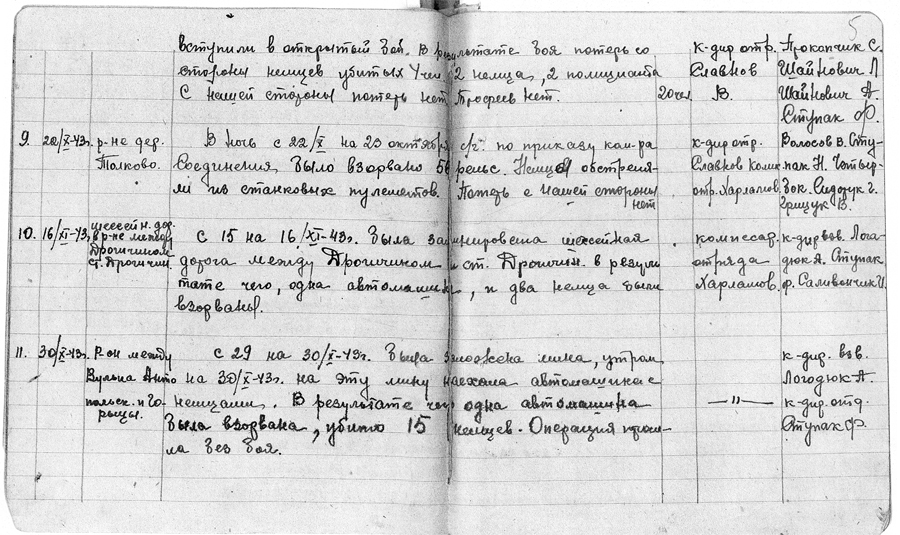 5
вступили в открытый бой. В результате боя потерь со к-дир отр. Прокопчик С.
стороны немцев убитых 4 чел. 2 немца, 2 полицианта Славнов Шайнович Л
С нашей стороны потерь нет. Трофеев нет. 20 чел. В. Шайнович А.
Ступак Ф.
9. 22/X-43г. р-не дер. В ночь с 22/X на 23 октября с/г по приказу ком-ра к-дир отр. Волосов В. Сту-
Толково. Соединения, было взорвано рельс. Немцы обстреля- Славнов Комис. пак Н.
ли из станковых пулеметов. Потерь с нашей стороны отр. Харламов. Сидорук Г.
нет Грищук В.
10. 16/XI-43 шоссейн. дор. С 15 на 16/XI-43г. была заминирована шоссейная комиссар. к-дир взв. Лого-
в р-не между дорога между Дрогичином и ст. Дрогичин. в резуль отряда дюк А. Ступак
Дрогичином тате чего, одна автомашина, и два немца были Харламов. Ф. Саливончик И.
ст. Дрогичин. взорваны.
11. 30/X-43г. Р-он между С 29 на 30/X-43г. была заложена мина, утром к-дир. взв.
Вулька Анто на 30/X-43г. на эту мину наехала автомашина с Логодюк А.
польск. и Го- немцами. В результате чего одна автомашина —〃— к-дир. отд.
рыцы. была взорвана, убито 15 немцев. Операция прош- Ступак Ф.
ла без боя.